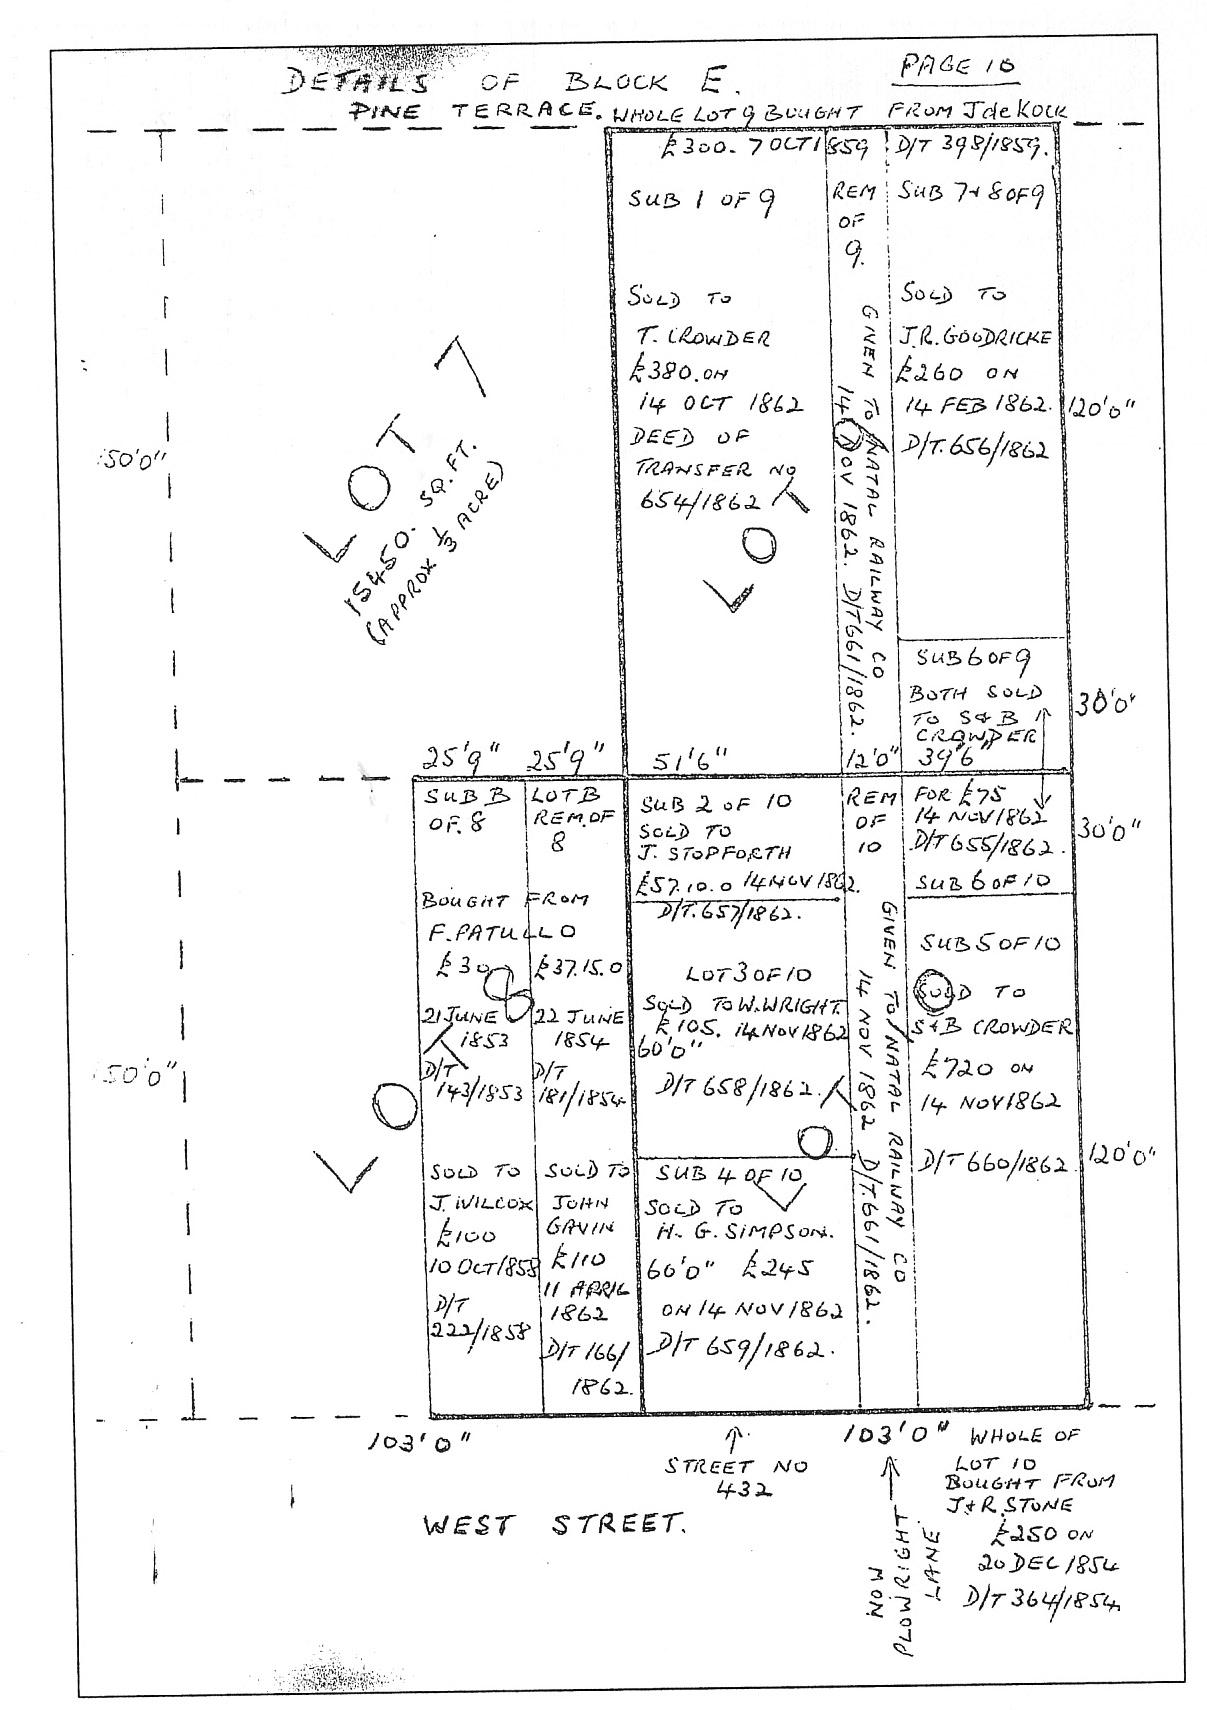 PAGE 10
DETAILS OF BLOCK E.
PINE TERRACE. WHOLE LOT 9 BOUGHT FROM J de KOCK
£300. 7 OCT 1859 D/T 398/1859.
SUB 1 OF 9
SOLD TO
T. CROWDER
£380. ON
14 OCT 1862
DEED OF
TRANSFER NO
654/1862
REM
OF
9.
GIVEN TO NATAL RAILWAY CO
14 NOV 1862. D/T 661/1862.
SUB 7 & 8 OF 9
SOLD TO
J.R. GOODRICKE
£260 ON
14 FEB 1862.
D/T. 656/1862
120'0"
LOT 7
15450. SQ. FT.
(APPROX 1/3 ACRE)
150'0"
LOT
SUB 6 OF 9
BOTH SOLD
TO S & B
CROWDER
30'0"
25'9" 25'9" 51'6" 12'0" 39'6"
SUB B
OF. 8
LOT B
REM. OF
8
BOUGHT FROM
F. PATULLO
£30
21 JUNE
1853
D/T
143/1853
£37.15.0
22 JUNE
1854
D/T
181/1854
LOT 8
SOLD TO
J. WILCOX
£100
10 OCT 1858
D/T
222/1858
SOLD TO
JOHN
GAVIN
£110
11 APRIL
1862
D/T 166/
1862.
SUB 2 OF 10
SOLD TO
J. STOPFORTH
£57.10.0 14 NOV 1862.
D/T. 657/1862.
LOT 3 OF 10
SOLD TO W. WRIGHT.
£105. 14 NOV 1862
60'0"
D/T 658/1862.
LOT
SUB 4 OF 10
SOLD TO
H. G. SIMPSON.
60'0" £245
ON 14 NOV 1862
D/T 659/1862.
REM
OF
10
GIVEN TO NATAL RAILWAY CO
14 NOV 1862 D/T. 661/1862.
FOR £75
14 NOV 1862
D/T 655/1862.
SUB 6 OF 10
30'0"
SUB 5 OF 10
SOLD TO
S & B CROWDER
£720 ON
14 NOV 1862
D/T 660/1862.
120'0"
150'0"
103'0" 103'0"
STREET NO
432
WEST STREET.
NOW
PLOWRIGHT
LANE
WHOLE OF
LOT 10
BOUGHT FROM
J & R. STONE
£250 ON
20 DEC 1854
D/T 364/1854.